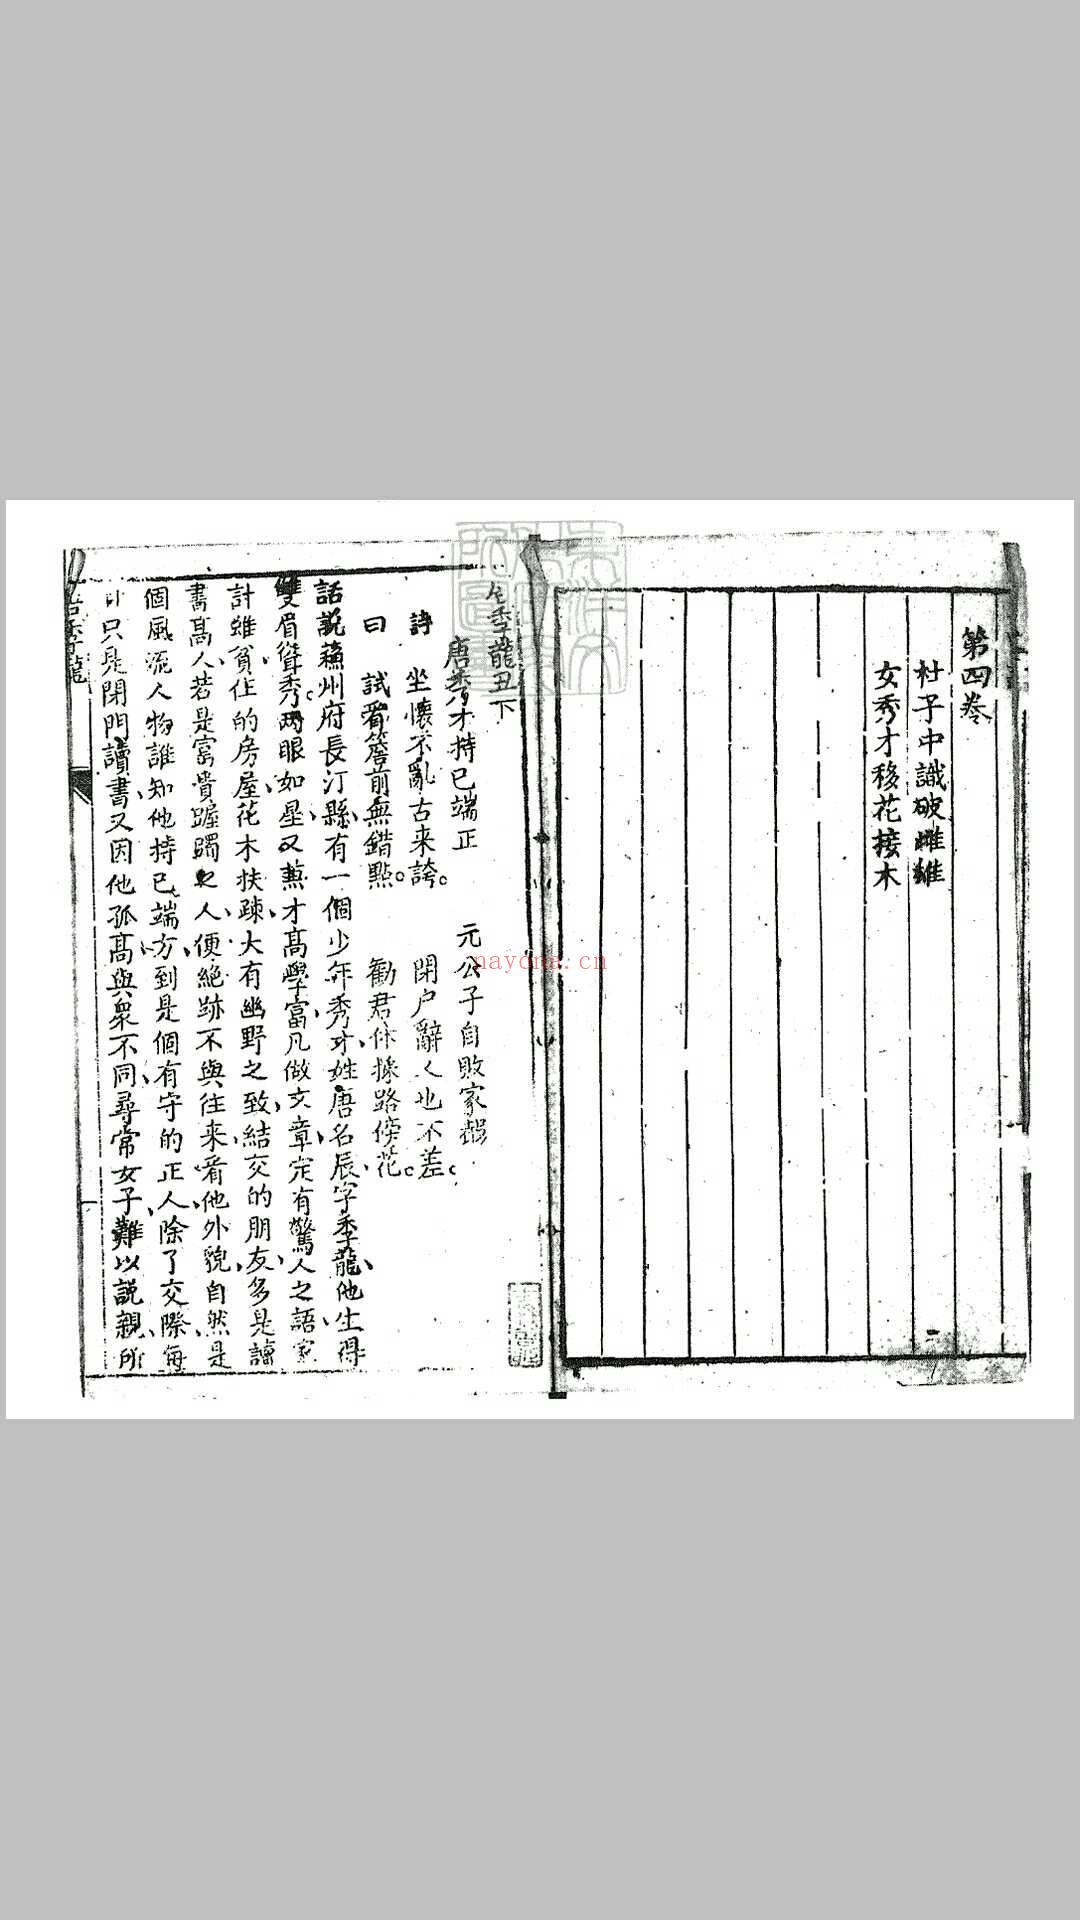 第四卷
杜子中識破雌雄
女秀才移花接木
二
季龍丑下
唐秀才持己端正 元公子自敗家聲
詩 坐懷不亂古来誇 閉户辭人也不差
曰 試看簷前無錯點 勸君休採路傍花
話說蘓州府長汀縣有一個少年秀才姓唐名辰字季龍他生得
雙眉聳秀兩眼如星又兼才高學富凡做文章定有驚人之語家
計雖貧住的房屋花木扶踈大有幽野之致結交的朋友多是讀
書高人若是富貴齷齪之人便絕跡不與往来看他外貌自然是
個風流人物誰知他持己端方到是個有守的正人除了交際每
只是閉門讀書又因他孤高與眾不同尋常女子難以說親所
季龍
nayona.cn